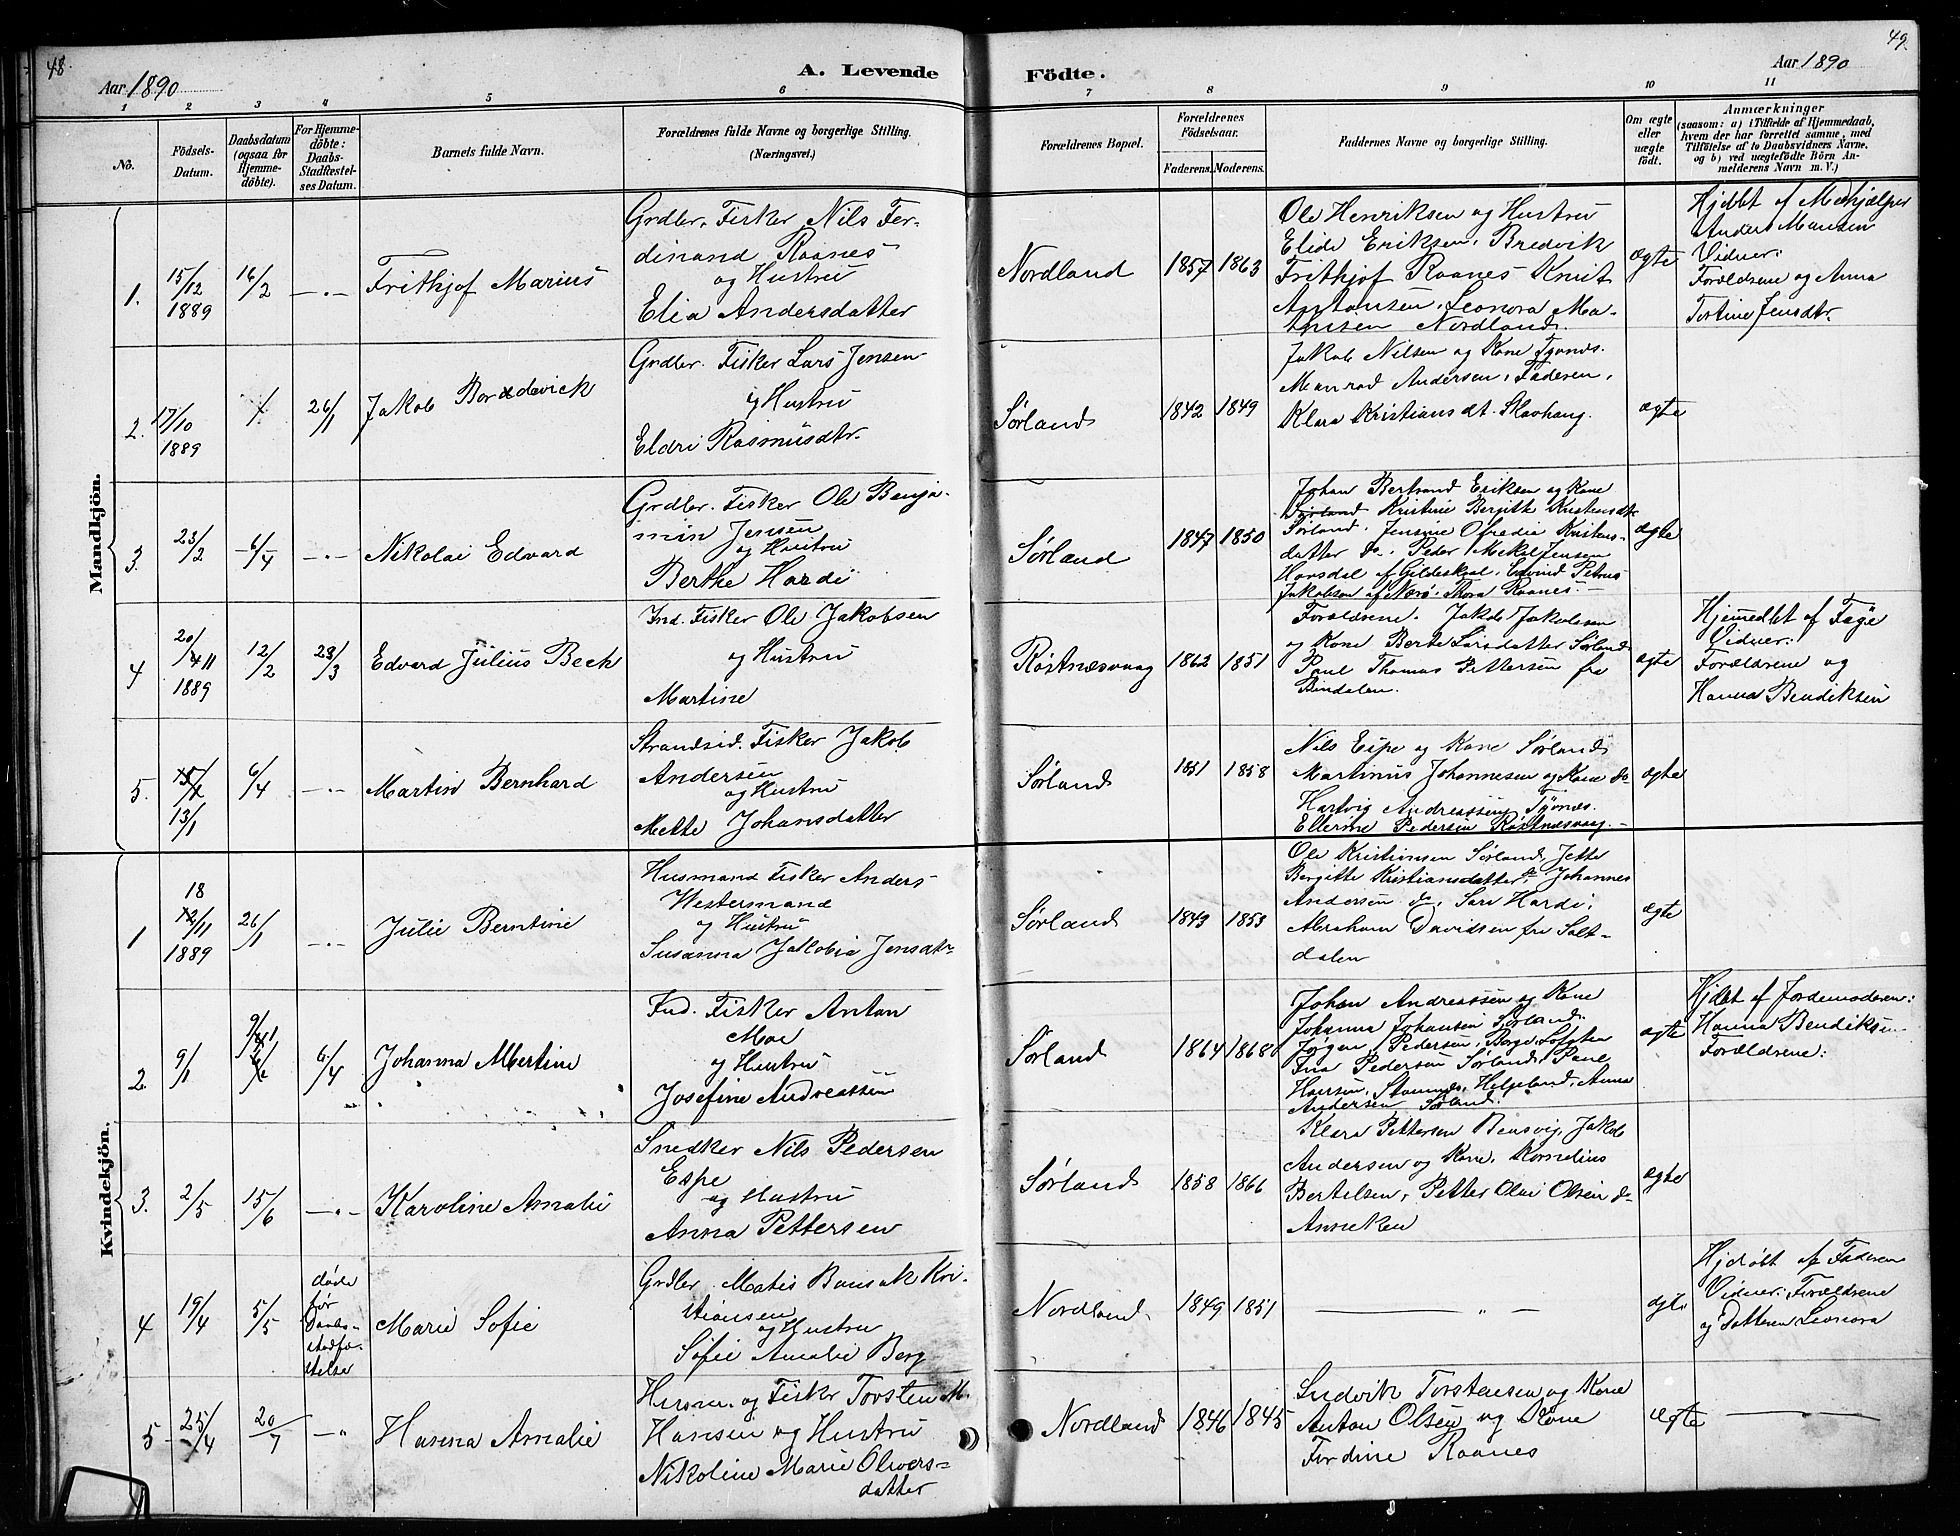 48.
49.
Aar 1890
A. Levende
Födte.
Aar 1890
1 2 3 4 5 6 7 8 9 10 11
No.
Födsels-
Datum.
Daabsdatum
(ogsaa for
Hjemme-
döbte).
For Hjemme-
döbte:
Daabs-
Stadfæstel-
ses Datum.
Barnets fulde Navn.
Forældrenes fulde Navne og borgerlige Stilling.
(Næringsvei.)
Forældrenes Bopæl.
Forældrenes
Födselsaar.
Faderens.
Moderens.
Faddernes Navne og borgerlige Stilling.
Om ægte
eller
uægte
födt.
Anmærkninger
(saasom: a) i Tilfælde af Hjemmedaab,
hvem der har forrettet samme, med
Tilföielse af to Daabsvidners Navne,
og b) ved uægtefödte Börn An-
melderens Navn m. V.)
Mandkjön.
1.
15/12
1889
16/2
—"—
Frithjof Marius
Grdbr. Fisker Nils Fer-
dinand Raanes
og Hustru
Elia Andersdatter
Nordland
1857
1863
Ole Henriksen og Hustru
Elide Eriksen, Bredvik
Frithjof Raanes Knut
Antonsen, Leonora Ma-
thisen Nordland.
ægte
Hjdbt af Medhjælper
Anders Mansen
Vidner:
Forældrene og Anna
Tortine Jensdtr.
2.
17/10
1889
26/1
Jakob Bordevick
Grdbr. Fisker Lars Jensen
og Hustru
Eldri Rasmusdtr.
Sørland
1842
1849
Jakob Nilsen og Kone Tyvnæs.
Manrad Andersen, Faderen,
Klara Kristiansdt. Skavhaug.
ægte
3.
23/2
6/4
—"—
Nikolai Edvard
Grdbr. Fisker Ole Benja-
min Jensen
og Hustru
Berthe Hardi
Sørland
1847
1850
Johan Bertrand Eriksen og Kone
Sørland Kristine Bergith Kristensdt.
Sørland. Jensine Ofredia Kristens-
datter do. Peder Mikal Jensen
Horsdal af Gildeskaal. Edvind Petrus
Jakobsen af Nærø. Thora Raanes.
ægte
4
20/11
1889
12/2
23/3
Edvard Julius Beck
Ind. Fisker Ole Jakobsen
og Hustru
Martine
Røstnæsvaag
1862
1851
Forældrene. Jakob Jakobsen
og Kone Berte Larsdatter Sørland
Paul Thomas Pettersen fra
Bindalen.
ægte
Hjemmedbt af Fage
Vidner:
Forældrene og
Hanna Bendiksen
5.
13/1
6/4
—"—
Martin Bernhard
Strandsid. Fisker Jakob
Andersen
og Hustru
Mette Johansdatter
Sørland
1851
1858
Nils Espe og Kone Sørland
Martinus Johannesen og Kone do
Hartvig Andreassen Tyvnæs.
Ellerine Pedersen Røstnæsvaag.
ægte
Kvindekjön.
1
18
12/11
1889
26/1
—"—
Julie Berntine
Husmand Fisker Anders
Westermand
og Hustru
Susanna Jakobia Jensdtr
Sørland
1843
1853
Ole Kristiansen Sørland, Jette
Bergitte Kristiansdatter do, Johannes
Andersen do, Sara Hardi,
Abraham Davidsen fra Salt-
dalen
ægte
2.
9/1
6/4
Johanna Albertine
Ind. Fisker Anton
Moe
og Hustru
Josefine Andreassen
Sørland
1864
1868
Johan Andreassen og Kone
Johanna Johansen Sørland.
Jørgen Pedersen, Borge Lofoten
Ina Pedersen Sørland, Paul
Hansen, Stamnæs, Helgeland, Anna
Andersen Sørland.
ægte
Hjdbt af Jordemoderen:
Hanna Bendiksen
Forældrene:
3.
2/5
15/6
—"—
Karoline Amalie
Snedker Nils Pedersen
Espe
og Hustru
Anna Pettersen
Sørland
1858
1866
Klara Pettersen Bensvig, Jakob
Andersen og Kone, Kornelius
Bertelsen, Petter Olai Olsen do
Anneken
ægte
4
19/4
5/5
døde
før
Daabs-
stadfæ-
stelse
Marie Sofie
Grdbr. Matis Bansak Kri-
stiansen
og Hustru
Sofie Amalie Berg
Nordland
1849
1851
— " —
ægte
Hjdøbt af Faderen
Vidner: Forældrene
og Datteren Leonora
5
25/4
20/7
—"
Hanna Amalie
Husm. og Fisker Torsten M.
Hansen og Hustru
Nikoline Marie Olivers-
datter
Nordland
1846
1845
Ludvik Torstensen og Kone
Anton Olsen og Kone
Ferdine Raanes
ægte